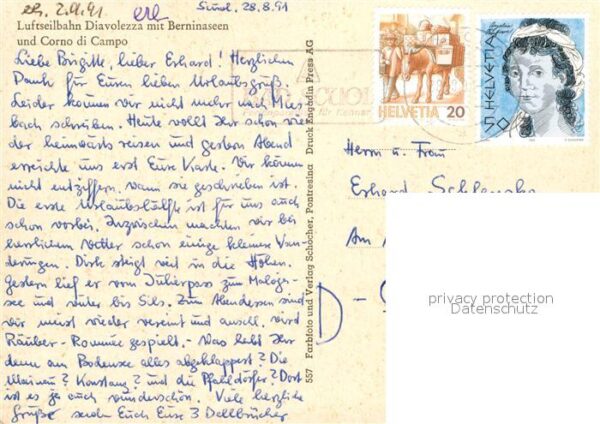 erl. 2.9.91
Scuol, 28.8.91
erl
Luftseilbahn Diavolezza mit Berninaseen
und Corno di Campo
Liebe Brigitte, lieber Erhard! Herzlichen
Dank für Euren lieben Urlaubsgruß.
Leider können wir nicht mehr nach Mies-
bach schreiben. Heute wollt Ihr schon wie-
der heimwärts reisen und gestern Abend
erreichte uns erst Eure Karte. Wir können
nicht entziffern, wann sie geschrieben ist.
Die erste Urlaubshälfte ist für uns auch
schon vorbei. Inzwischen machten wir bei
herrlichem Wetter schon einige kleinen Wan-
derungen. Dirk steigt viel in die Höhen.
Gestern lief er vom Julierpass zum Maloja-
see und weiter bis Sils. Zum Abendessen sind
wir meist wieder vereint und anschl. wird
Räuber-Rommée gespielt. - Was habt Ihr
denn am Bodensee alles abgeklappert? Die
Mainau? Konstanz? und die Pfahldörfer? Dort
ist es ja auch wunderschön. Viele herzliche
Grüße senden Euch Eure 3 Dellbrücker
557 Farbfoto und Verlag Schocher, Pontresina Druck Engadin Press AG
HELVETIA 20
HELVETIA 50
Herrn u. Frau
Erhard
Am
D-
privacy protection
Datenschutz